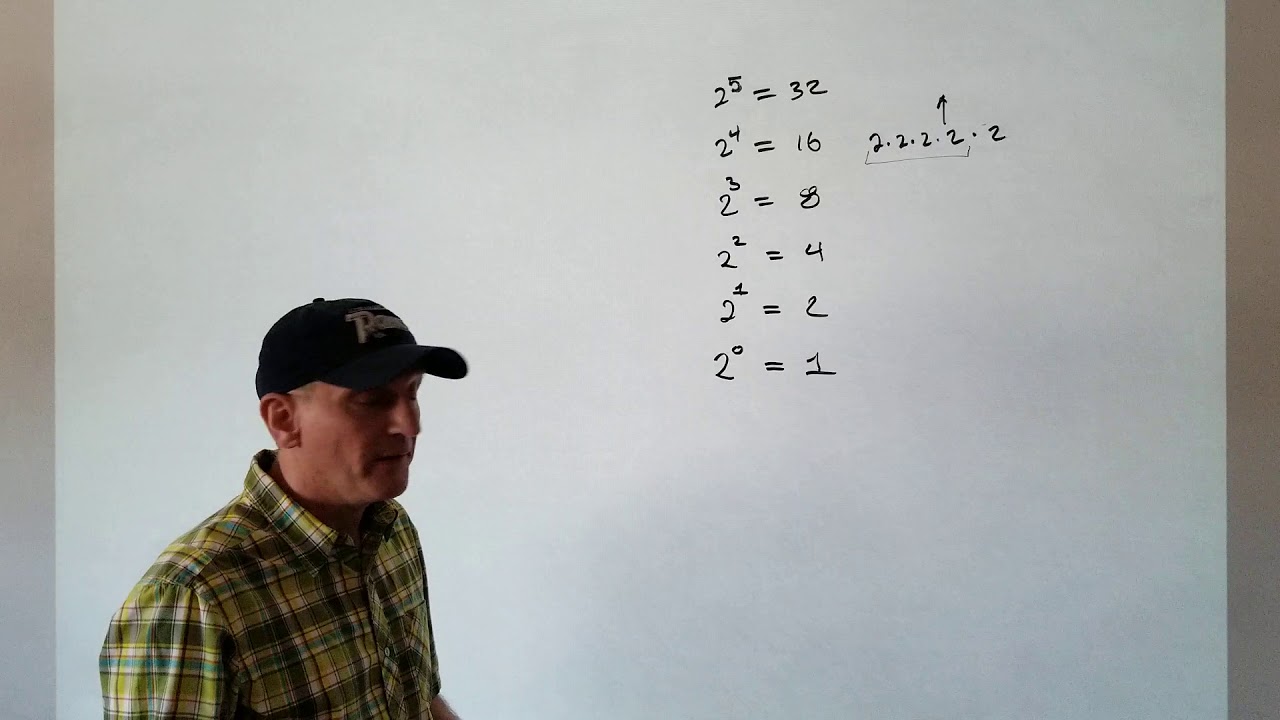 2⁵ = 32
2⁴ = 16 2·2·2·2·2
2³ = 8
2² = 4
2¹ = 2
2⁰ = 1